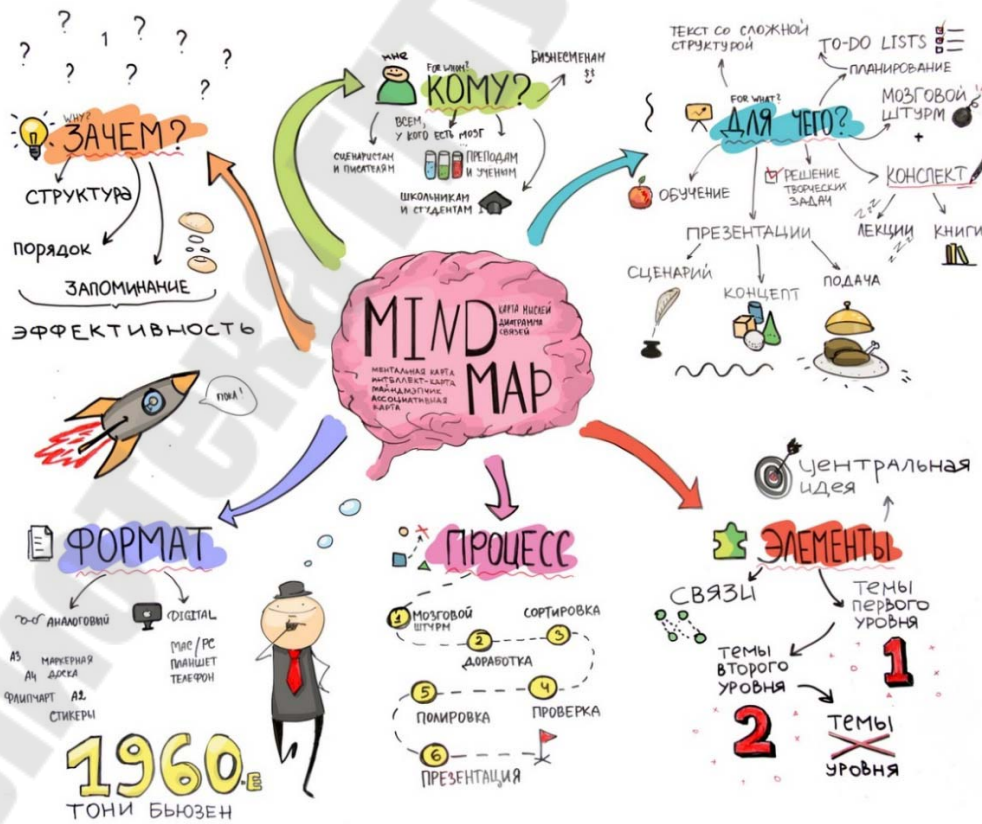 ? ? 1 ? ? ? ? ? ?
WHY?
ЗАЧЕМ?
СТРУКТУРА
ПОРЯДОК
ЗАПОМИНАНИЕ
ЭФФЕКТИВНОСТЬ
МНЕ
FOR WHOM?
КОМУ?
БИЗНЕСМЕНАМ
$$
ВСЕМ,
У КОГО ЕСТЬ МОЗГ
СЦЕНАРИСТАМ
И ПИСАТЕЛЯМ
ПРЕПОДАМ
И УЧЕНЫМ
ШКОЛЬНИКАМ
И СТУДЕНТАМ
FOR WHAT?
ДЛЯ ЧЕГО?
ТЕКСТ СО СЛОЖНОЙ
СТРУКТУРОЙ
TO-DO LISTS
ПЛАНИРОВАНИЕ
МОЗГОВОЙ
ШТУРМ
+
КОНСПЕКТ
ЛЕКЦИИ
КНИГИ
ОБУЧЕНИЕ
РЕШЕНИЕ
ТВОРЧЕСКИХ
ЗАДАЧ
ПРЕЗЕНТАЦИИ
СЦЕНАРИЙ
КОНЦЕПТ
ПОДАЧА
MIND
MAP
КАРТА МЫСЛЕЙ
ДИАГРАММА
СВЯЗЕЙ
МЕНТАЛЬНАЯ КАРТА
ИНТЕЛЛЕКТ-КАРТА
МАЙНДМЭПЧИК
АССОЦИАТИВНАЯ
КАРТА
ПОКА!
ФОРМАТ
АНАЛОГОВЫЙ
А3
А4
МАРКЕРНАЯ
ДОСКА
ФЛИПЧАРТ А2
СТИКЕРЫ
DIGITAL
MAC/PC
ПЛАНШЕТ
ТЕЛЕФОН
1960.Е
ТОНИ БЬЮЗЕН
ПРОЦЕСС
1 МОЗГОВОЙ
ШТУРМ
2
ДОРАБОТКА
СОРТИРОВКА
3
4
ПРОВЕРКА
5
ПОЛИРОВКА
6
ПРЕЗЕНТАЦИЯ
ЭЛЕМЕНТЫ
ЦЕНТРАЛЬНАЯ
ИДЕЯ
СВЯЗИ
ТЕМЫ
ПЕРВОГО
УРОВНЯ
1
ТЕМЫ
ВТОРОГО
УРОВНЯ
2
ТЕМЫ
УРОВНЯ